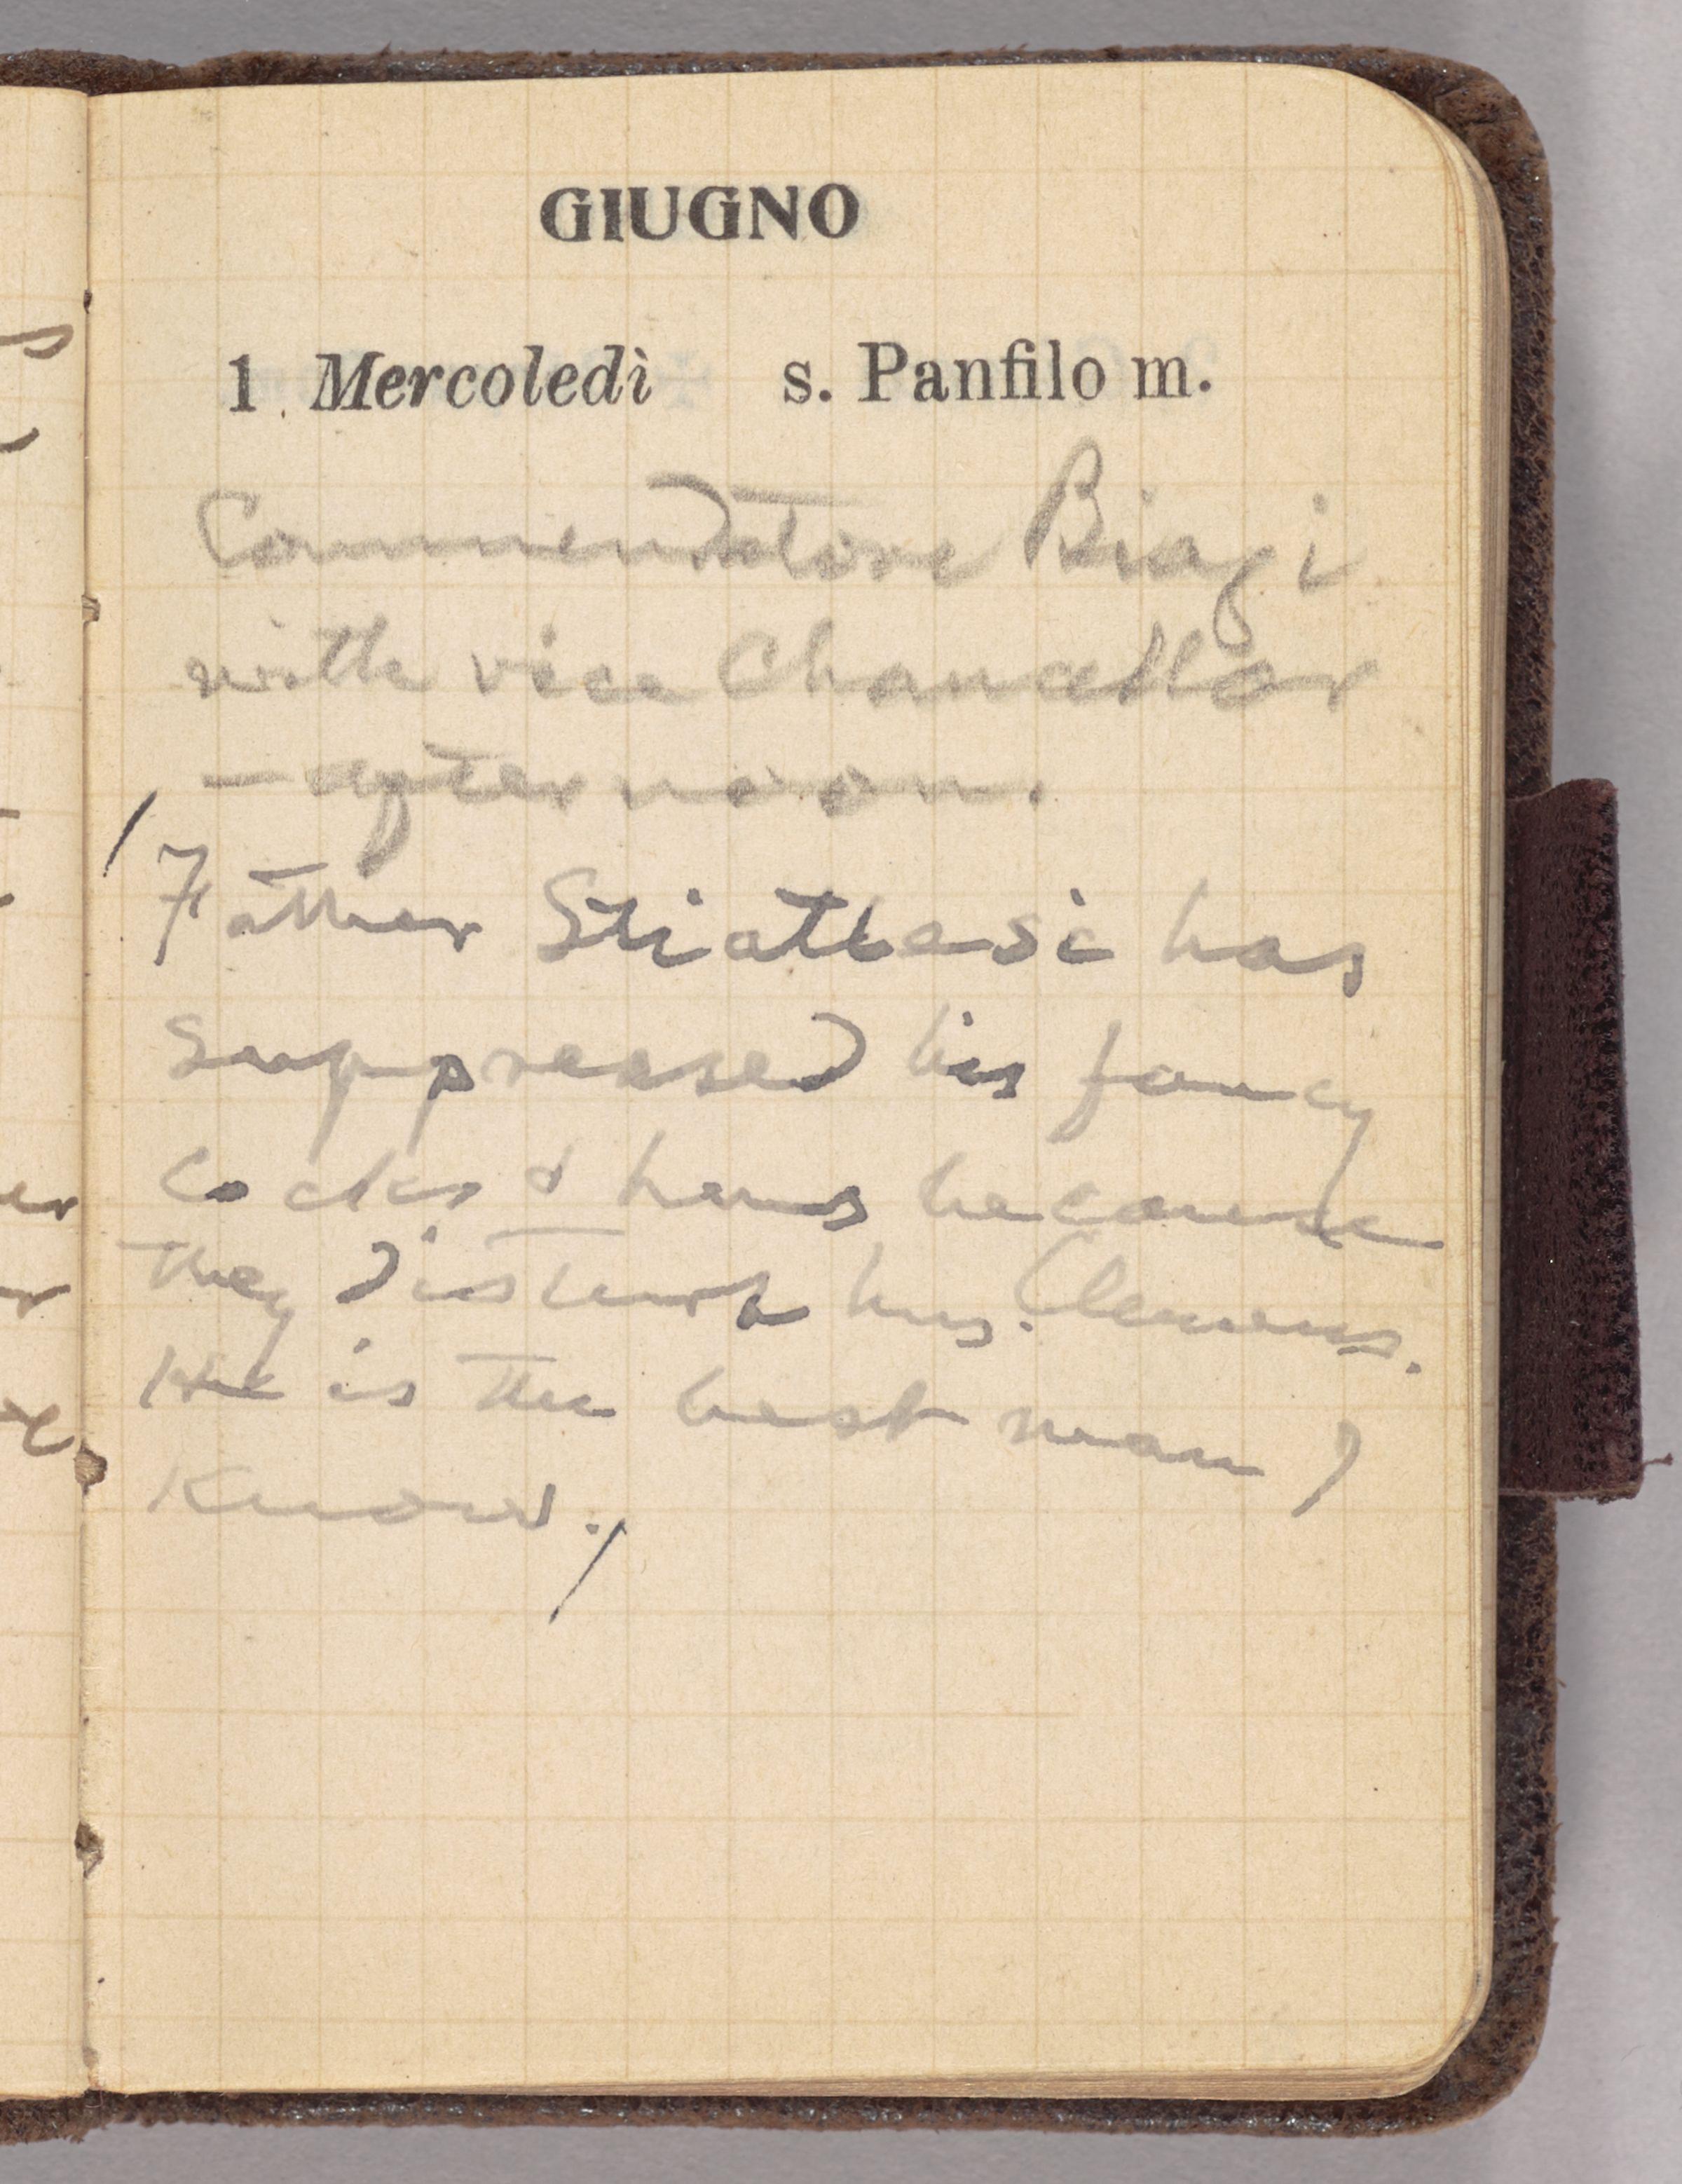 GIUGNO
1 Mercoledì s. Panfilo m.
Commendatore Biagi
with vice Chancellor
— afternoon.
Father Stiattesi has
suppressed his fancy
cocks & hens because
they disturb Mrs. Clemens.
He is the best man I
know.